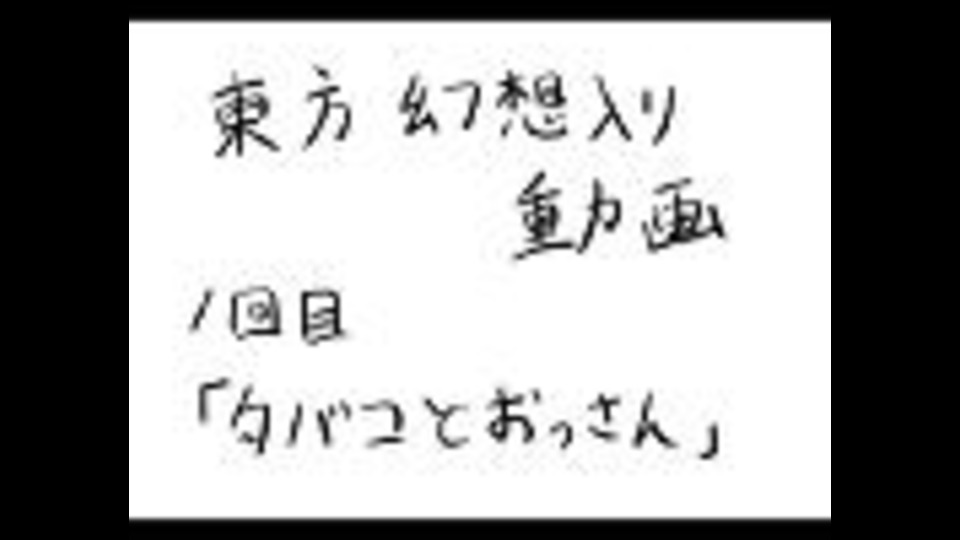 東方 幻想入り
動画
1回目
「タバコとおっさん」